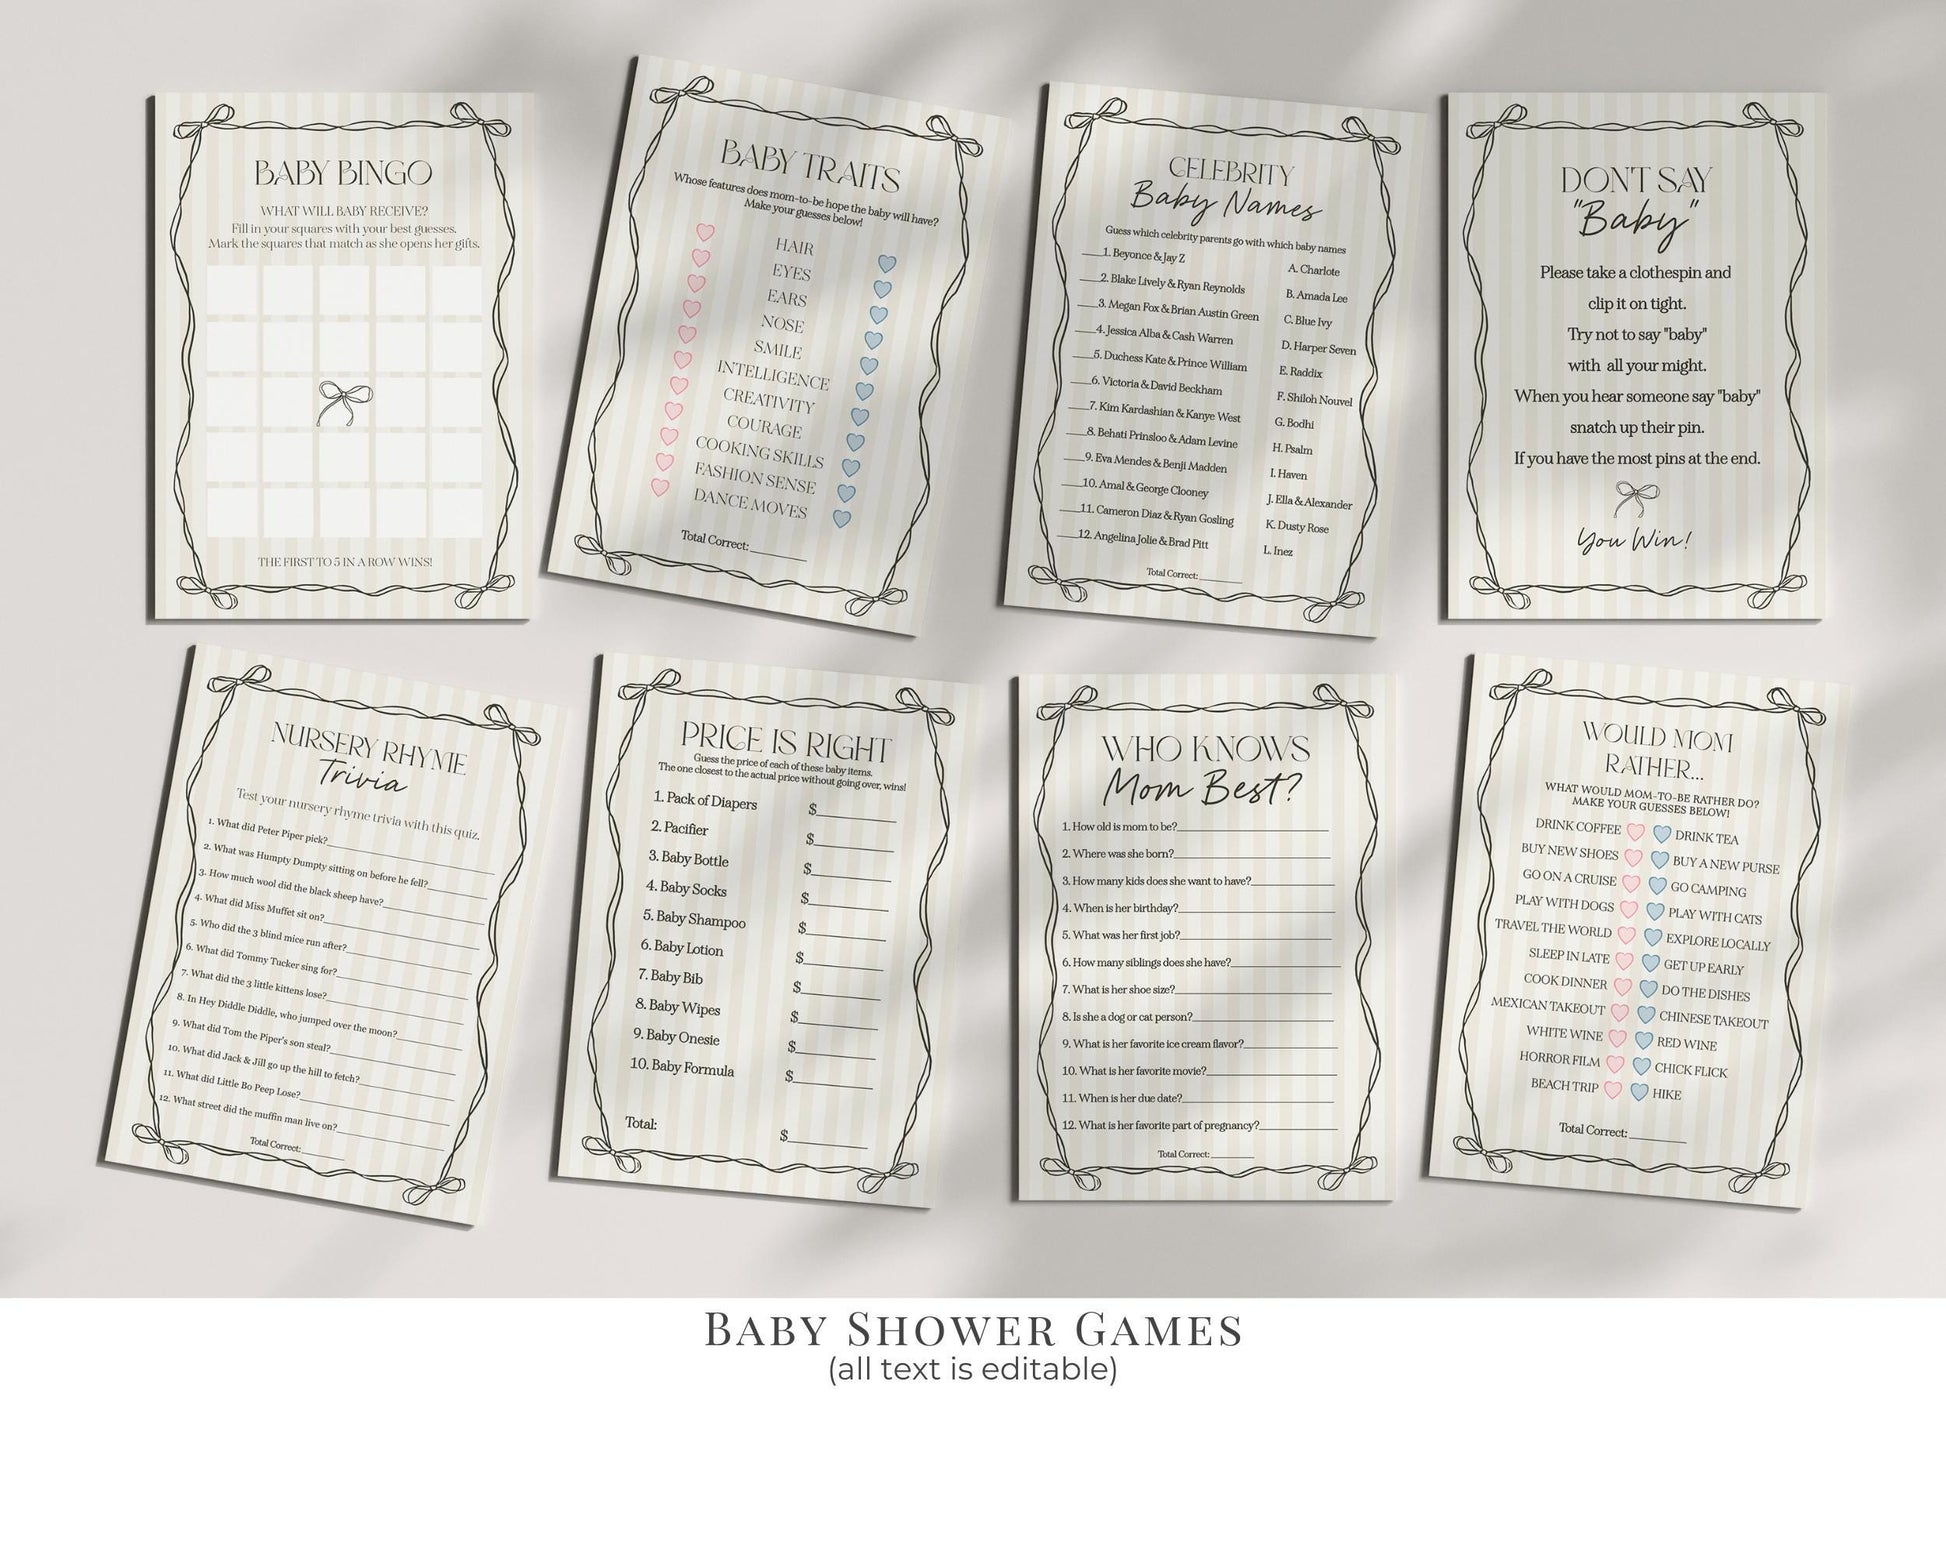 BABY BINGO
WHAT WILL BABY RECEIVE?
Fill in your squares with your best guesses.
Mark the squares that match as she opens her gifts.
THE FIRST TO 5 IN A ROW WINS!
BABY TRAITS
Whose features does mom-to-be hope the baby will have?
Make your guesses below!
HAIR
EYES
EARS
NOSE
SMILE
INTELLIGENCE
CREATIVITY
COURAGE
COOKING SKILLS
FASHION SENSE
DANCE MOVES
Total Correct:________
CELEBRITY
Baby Names
Guess which celebrity parents go with which baby names
____1. Beyonce & Jay Z A. Charlote
____2. Blake Lively & Ryan Reynolds B. Amada Lee
____3. Megan Fox & Brian Austin Green C. Blue Ivy
____4. Jessica Alba & Cash Warren D. Harper Seven
____5. Duchess Kate & Prince William E. Raddix
____6. Victoria & David Beckham F. Shiloh Nouvel
____7. Kim Kardashian & Kanye West G. Bodhi
____8. Behati Prinsloo & Adam Levine H. Psalm
____9. Eva Mendes & Benji Madden I. Haven
____10. Amal & George Clooney J. Ella & Alexander
____11. Cameron Diaz & Ryan Gosling K. Dusty Rose
____12. Angelina Jolie & Brad Pitt L. Inez
Total Correct:________
DON'T SAY
"Baby"
Please take a clothespin and
clip it on tight.
Try not to say "baby"
with all your might.
When you hear someone say "baby"
snatch up their pin.
If you have the most pins at the end.
You Win!
NURSERY RHYME
Trivia
Test your nursery rhyme trivia with this quiz.
1. What did Peter Piper pick?________
2. What was Humpty Dumpty sitting on before he fell?________
3. How much wool did the black sheep have?________
4. What did Miss Muffet sit on?________
5. Who did the 3 blind mice run after?________
6. What did Tommy Tucker sing for?________
7. What did the 3 little kittens lose?________
8. In Hey Diddle Diddle, who jumped over the moon?________
9. What did Tom the Piper's son steal?________
10. What did Jack & Jill go up the hill to fetch?________
11. What did Little Bo Peep Lose?________
12. What street did the muffin man live on?________
Total Correct:________
PRICE IS RIGHT
Guess the price of each of these baby items.
The one closest to the actual price without going over, wins!
1. Pack of Diapers $________
2. Pacifier $________
3. Baby Bottle $________
4. Baby Socks $________
5. Baby Shampoo $________
6. Baby Lotion $________
7. Baby Bib $________
8. Baby Wipes $________
9. Baby Onesie $________
10. Baby Formula $________
Total: $________
WHO KNOWS
Mom Best?
1. How old is mom to be?________
2. Where was she born?________
3. How many kids does she want to have?________
4. When is her birthday?________
5. What was her first job?________
6. How many siblings does she have?________
7. What is her shoe size?________
8. Is she a dog or cat person?________
9. What is her favorite ice cream flavor?________
10. What is her favorite movie?________
11. When is her due date?________
12. What is her favorite part of pregnancy?________
Total Correct:________
WOULD MOM
RATHER...
WHAT WOULD MOM-TO-BE RATHER DO?
MAKE YOUR GUESSES BELOW!
DRINK COFFEE DRINK TEA
BUY NEW SHOES BUY A NEW PURSE
GO ON A CRUISE GO CAMPING
PLAY WITH DOGS PLAY WITH CATS
TRAVEL THE WORLD EXPLORE LOCALLY
SLEEP IN LATE GET UP EARLY
COOK DINNER DO THE DISHES
MEXICAN TAKEOUT CHINESE TAKEOUT
WHITE WINE RED WINE
HORROR FILM CHICK FLICK
BEACH TRIP HIKE
Total Correct:________
BABY SHOWER GAMES
(all text is editable)